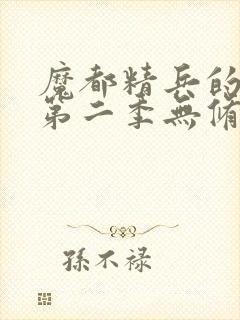 魔都精兵的
第二季無脩
孫不禄